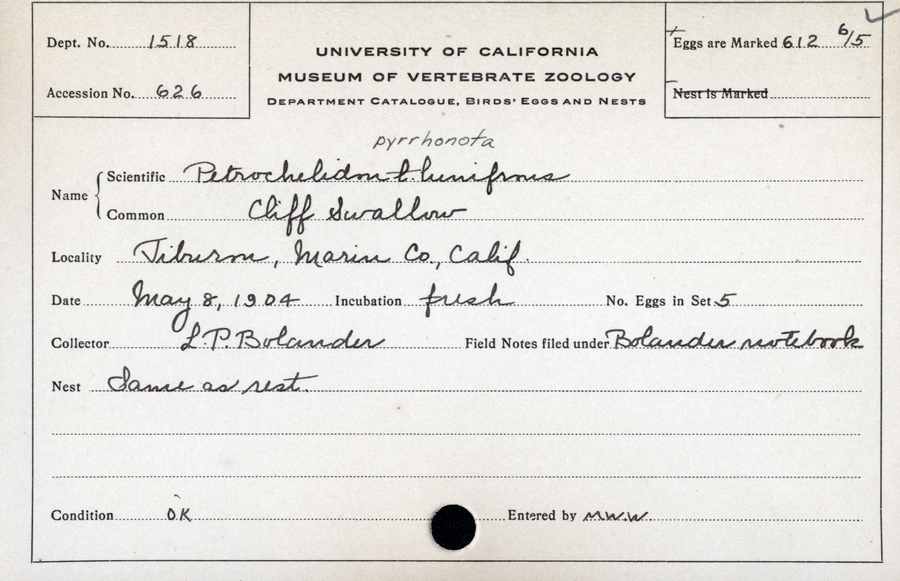 Dept. No. 1518
Accession No. 626
UNIVERSITY OF CALIFORNIA
MUSEUM OF VERTEBRATE ZOOLOGY
DEPARTMENT CATALOGUE, BIRDS' EGGS AND NESTS
Eggs are Marked 612 6/5
Nest is Marked
pyrrhonota
Name
Scientific Petrochelidon l. lunifrons
Common Cliff Swallow
Locality Tiburon, Marin Co., Calif.
Date May 8, 1904 Incubation fresh No. Eggs in Set 5
Collector L.P. Bolander Field Notes filed under Bolander notebook
Nest Same as rest.
Condition OK Entered by M.W.W.